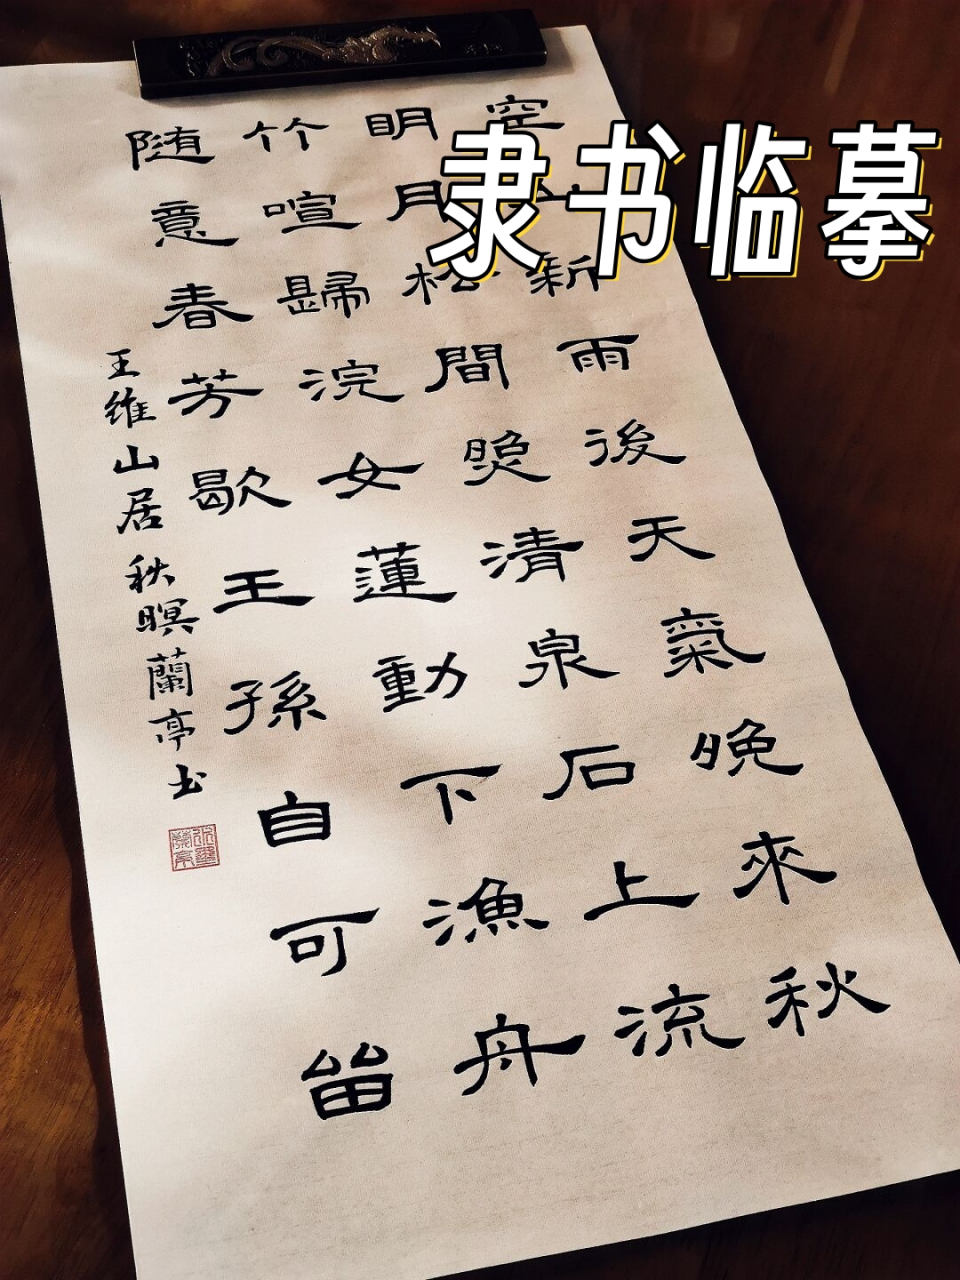 隶书临摹
空山新雨後天氣晚來秋
眀月松間照清泉石上流
竹喧歸浣女蓮動下漁舟
随意春芳歇王孫自可留
王维山居秋暝蘭亭书